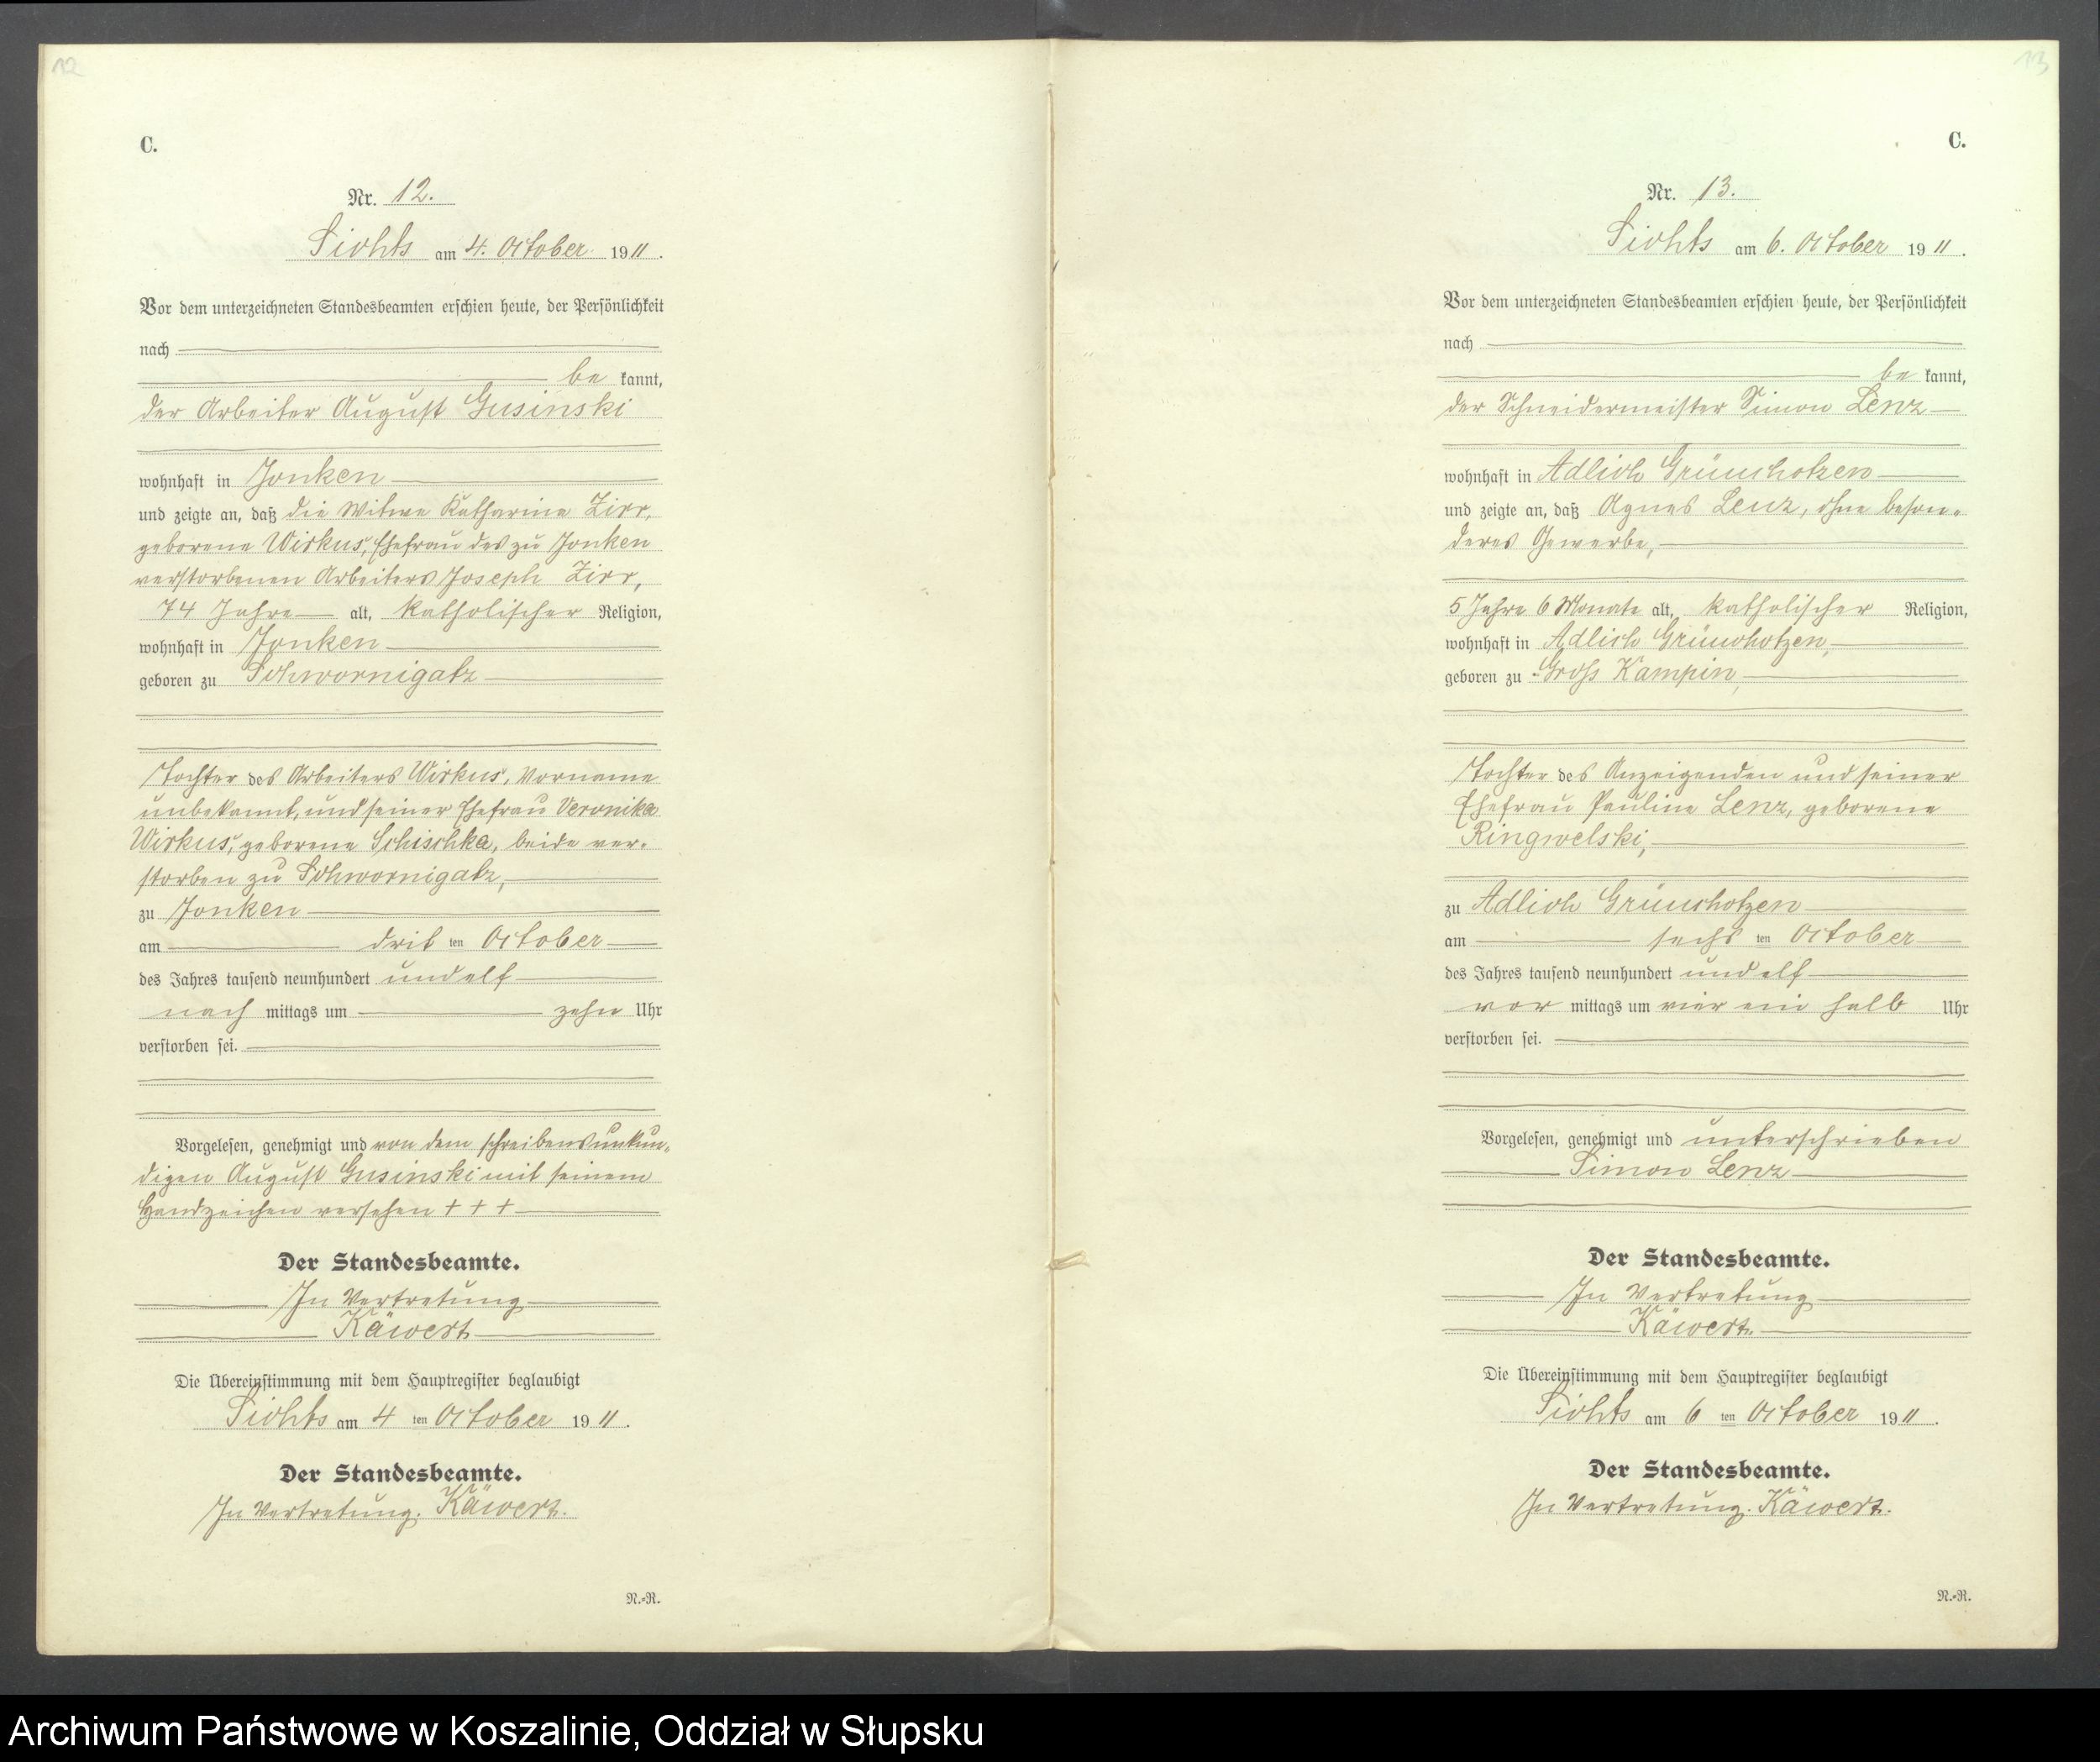 12
C.
Nr. 12.
Lichts am 4. October 1911.
Vor dem unterzeichneten Standesbeamten erschien heute, der Persönlichkeit
nach
be kannt,
der Arbeiter August Gusinski
wohnhaft in Jonken
und zeigte an, daß die Witwe Katharina Zirr,
geborene Wirkus, Ehefrau des zu Jonken
verstorbenen Arbeiters Joseph Zirr,
74 Jahre alt, katholischer Religion,
wohnhaft in Jonken
geboren zu Schwornigatz
Tochter des Arbeiters Wirkus, Vorname
unbekannt, und seiner Ehefrau Veronika
Wirkus, geborene Schischka, beide ver-
storben zu Schwornigatz,
zu Jonken
am drit ten October
des Jahres tausend neunhundert und elf
nach mittags um zehn Uhr
verstorben sei.
Vorgelesen, genehmigt und von dem schreibensunkun-
digen August Gusinski mit seinem
Handzeichen versehen + + +
Der Standesbeamte.
In Vertretung
Käwert
Die Übereinstimmung mit dem Hauptregister beglaubigt
Lichts am 4 ten October 1911.
Der Standesbeamte.
In Vertretung. Käwert.
N.-R.
13
C.
Nr. 13.
Lichts am 6. October 1911.
Vor dem unterzeichneten Standesbeamten erschien heute, der Persönlichkeit
nach
be kannt,
der Schneidermeister Simon Lenz
wohnhaft in Adlich Grünchotzen
und zeigte an, daß Agnes Lenz, ohne beson-
deres Gewerbe,
5 Jahre 6 Monate alt, katholischer Religion,
wohnhaft in Adlich Grünchotzen,
geboren zu Groß Kampin,
Tochter des Anzeigenden und seiner
Ehefrau Pauline Lenz, geborene
Ringwelski,
zu Adlich Grünchotzen
am sechs ten October
des Jahres tausend neunhundert und elf
vor mittags um vier ein halb Uhr
verstorben sei.
Vorgelesen, genehmigt und unterschrieben
Simon Lenz
Der Standesbeamte.
In Vertretung
Käwert.
Die Übereinstimmung mit dem Hauptregister beglaubigt
Lichts am 6 ten October 1911.
Der Standesbeamte.
In Vertretung. Käwert.
N.-R.
Archiwum Państwowe w Koszalinie, Oddział w Słupsku